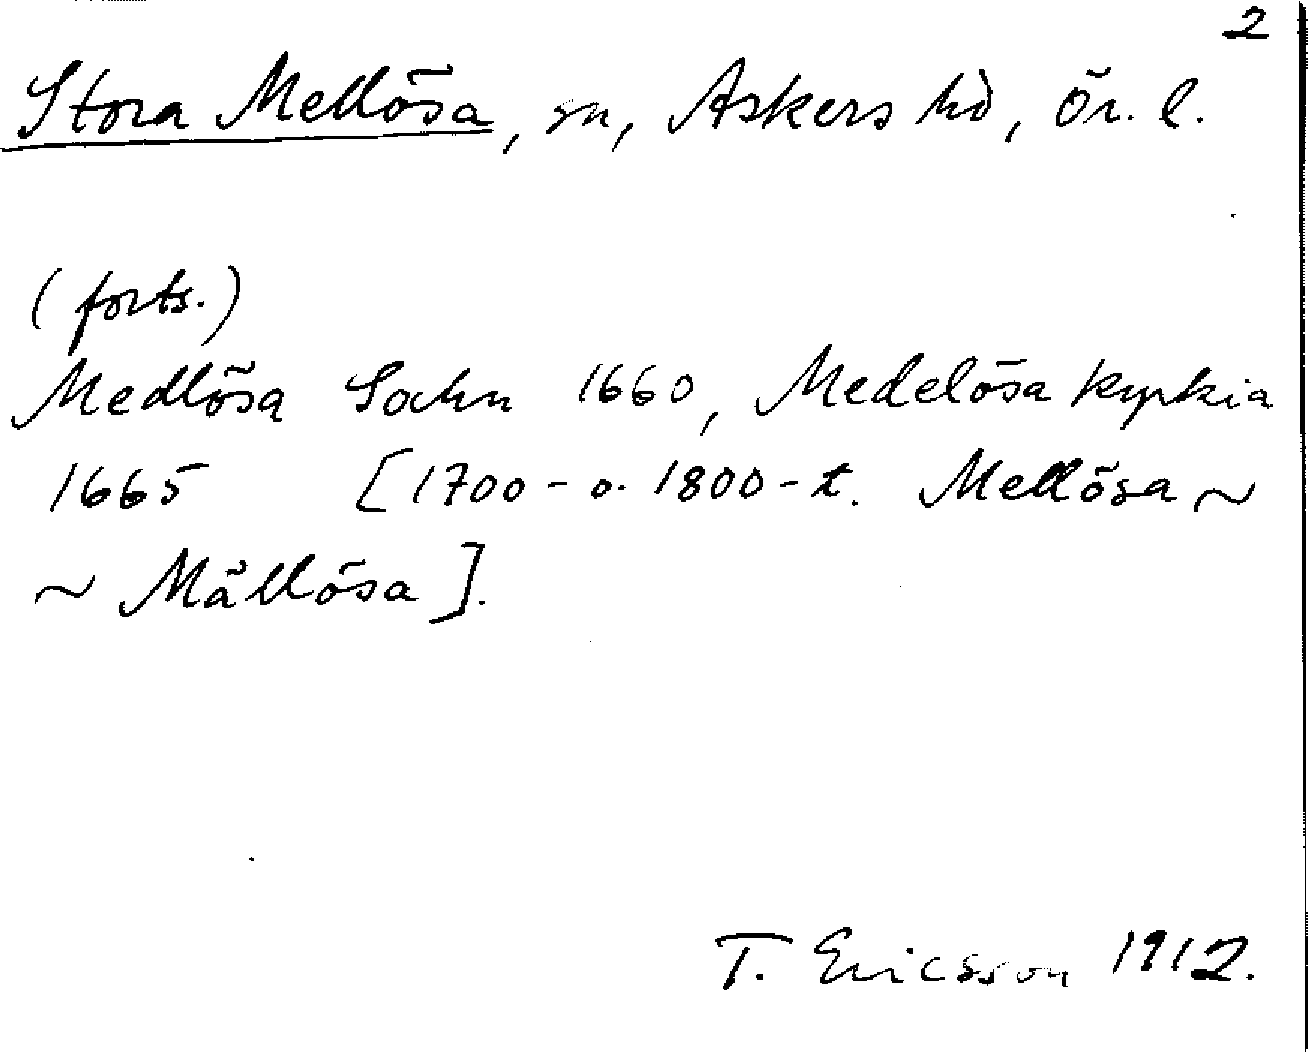 2
Stora Mellösa, sn, Askers hd, Ör. l.
(forts.)
Medlösa Sochn 1660, Medelösa kyrkia
1665 [1700- o. 1800-t. Mellösa ~
~ Mällösa].
T. Ericsson 1912.